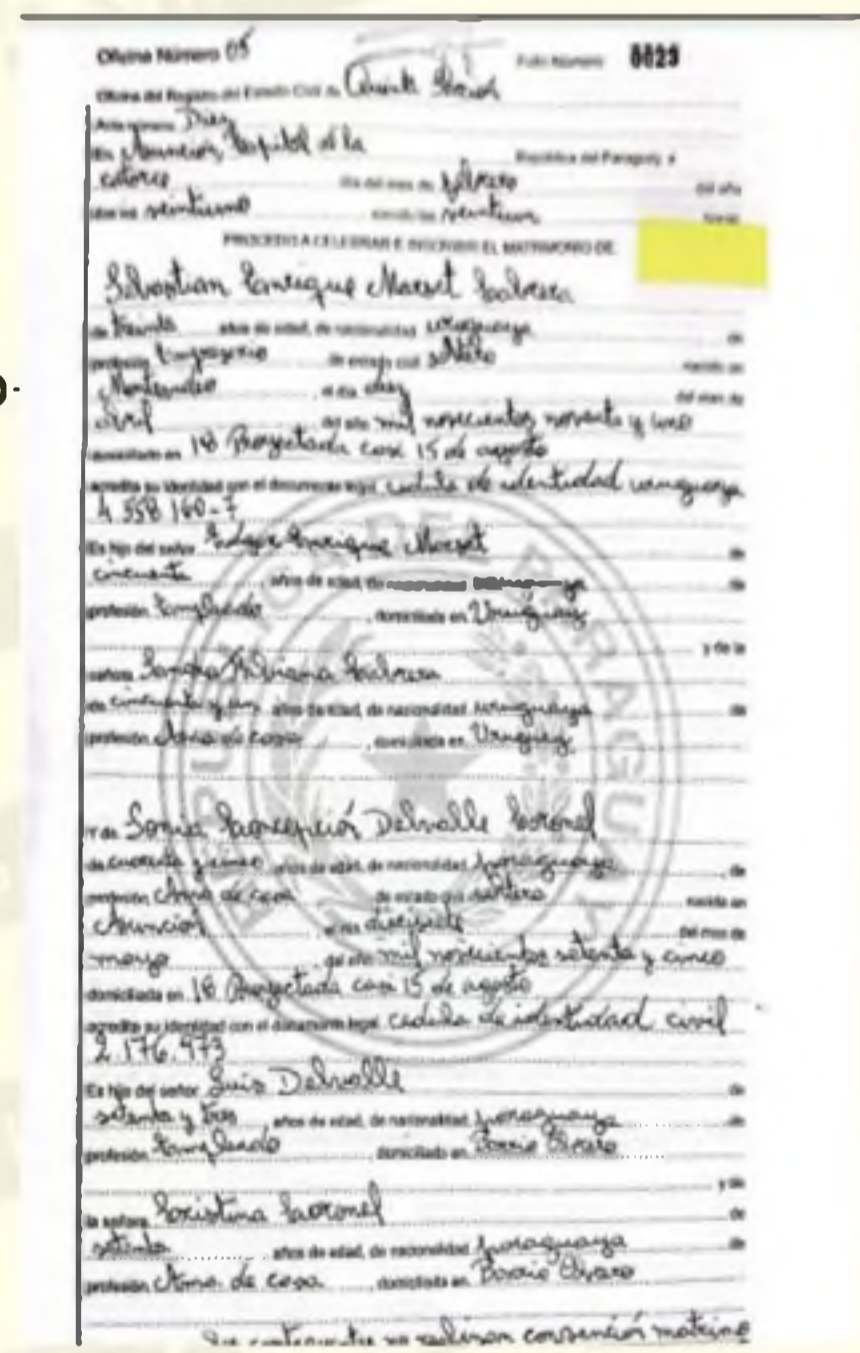 Oficina Número 05 Folio Número 0023
Oficina del Registro del Estado Civil de Quinta
Acta número Diez
En Asunción, Capital de la República del Paraguay, a
catorce día del mes de febrero del año
dos mil veintiuno siendo las veintiun horas
PROCEDO A CELEBRAR E INSCRIBIR EL MATRIMONIO DE:
Sebastian Enrique Marset Cabrera
de treinta años de edad, de nacionalidad uruguaya de
profesión Empresario de estado civil soltero nacido en
Montevideo el día diez del mes de
abril del año mil novecientos noventa y uno
domiciliado en 18 Proyectada casi 15 de agosto
acredita su identidad con el documento legal cedula de identidad uruguaya
4 558 160-7
Es hijo del señor Edgar Enrique Marset de
cincuenta años de edad, de de
profesión Empleado domiciliado en Uruguay
y de la
señora Sandra Fabiana Cabrera
de cincuenta y años de edad, de nacionalidad uruguaya de
profesión Ama de casa, domiciliada en Uruguay
Y de Sonia Concepción Delvalle Coronel
de cuarenta y cinco años de edad, de nacionalidad paraguaya, de
profesión Ama de casa de estado civil soltera nacida en
Asunción el día diecisiete del mes de
marzo del año mil novecientos setenta y cinco
domiciliada en 18 Proyectada casi 15 de agosto
acredita su identidad con el documento legal Cedula de identidad civil
2.176.973
Es hijo del señor Luis Delvalle de
setenta y tres años de edad, de nacionalidad paraguaya de
profesión Empleado domiciliado en Barrio Obrero
y de
la señora Cristina Coronel de
setenta años de edad, de nacionalidad paraguaya de
profesión Ama de casa domiciliada en Barrio Obrero
no realizan convención matrimo
REPUBLICA DEL PARAGUAY